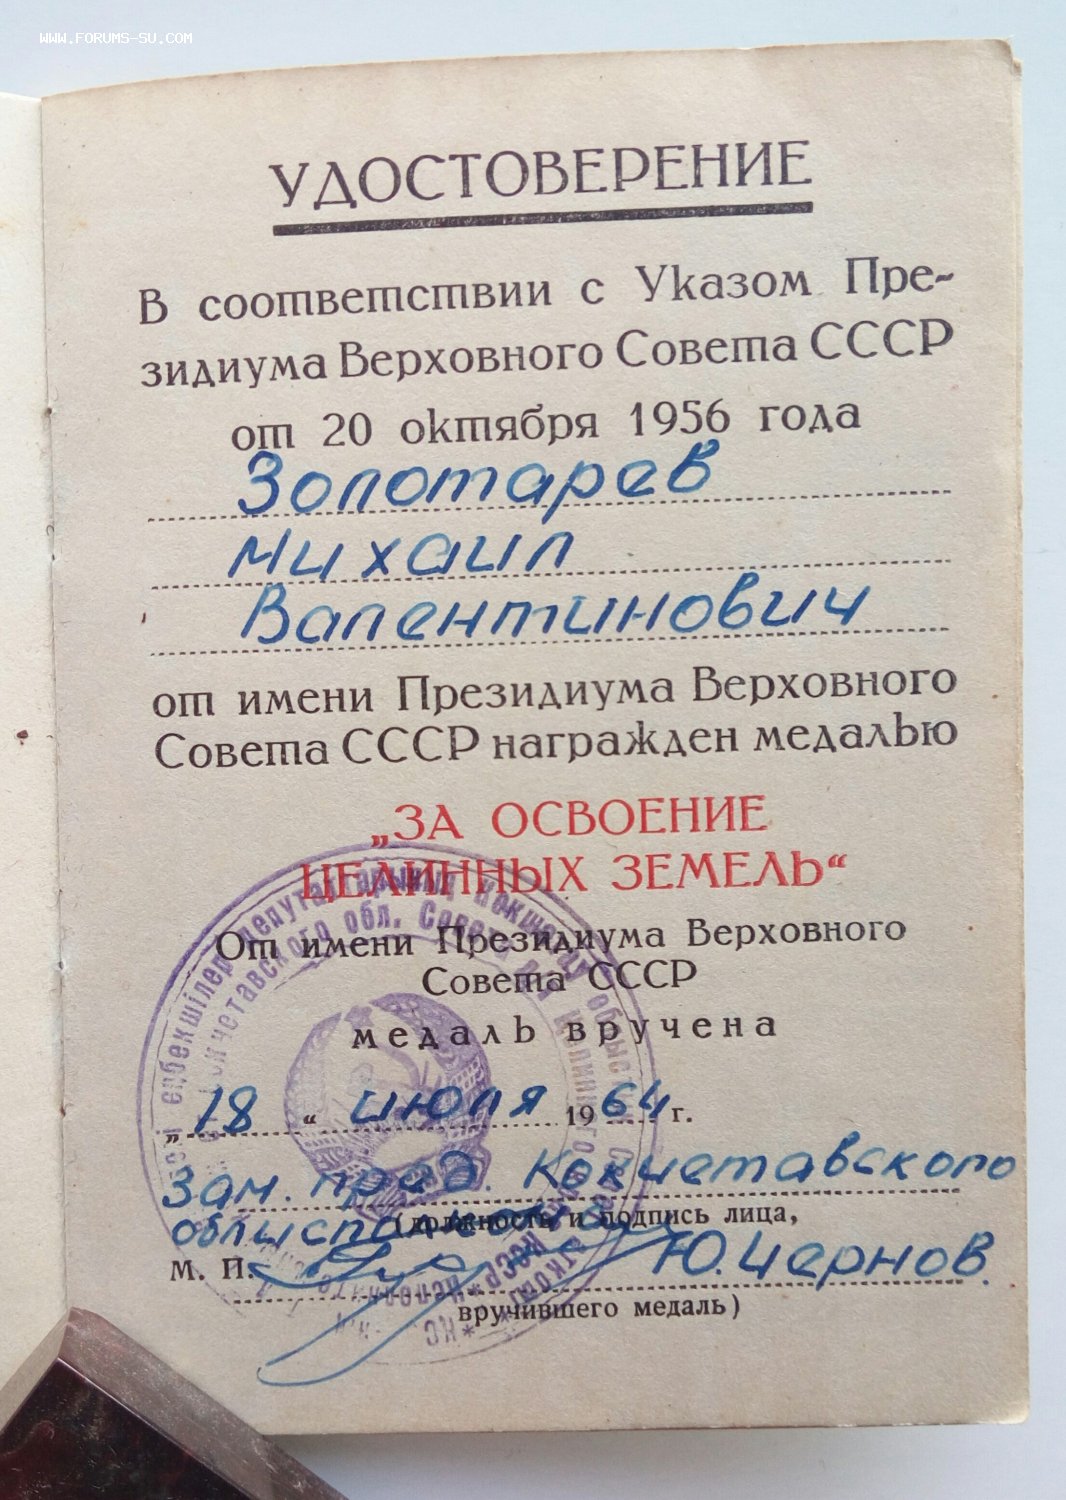 WWW.FORUMS-SU.COM
УДОСТОВЕРЕНИЕ
В соответствии с Указом Пре-
зидиума Верховного Совета СССР
от 20 октября 1956 года
Золотарев
Михаил
Валентинович
от имени Президиума Верховного
Совета СССР награжден медалью
„ЗА ОСВОЕНИЕ
ЦЕЛИННЫХ ЗЕМЕЛЬ“
От имени Президиума Верховного
Совета СССР
медаль вручена
„18“ июля 1964 г.
Зам. пред. Кокчетавского
облисполкома
(должность и подпись лица,
М. П. Ю. Чернов.
вручившего медаль)
депутаттарының Көкшетау облыс
Кокчетавского обл. Совета